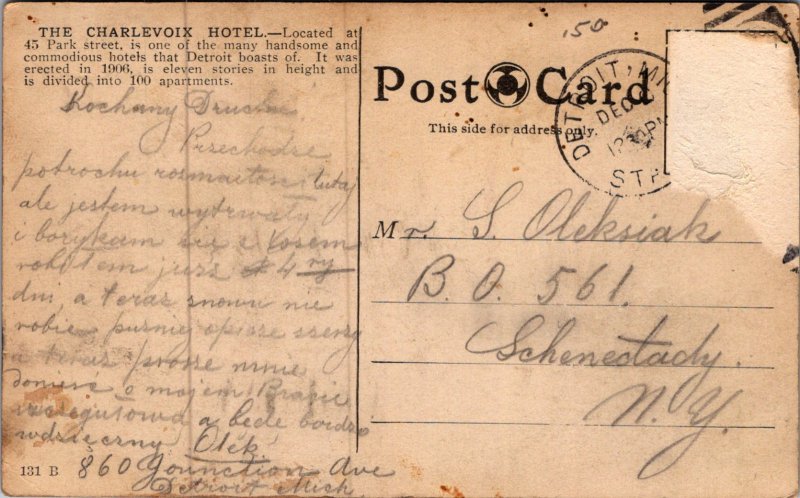 THE CHARLEVOIX HOTEL.—Located at
45 Park street, is one of the many handsome and
commodious hotels that Detroit boasts of. It was
erected in 1906, is eleven stories in height and
is divided into 100 apartments.
Kochany Druchu
Przechodze
potrochu rozmaitosci tutaj
ale jestem wytrwaly
i borykam sie z losem
robilem juz 4 ry
dni, a teraz znowu nie
robie puznie opisze szerzy
a teraz prosze mnie
doniesc o mojem Bracie
szczegulowo a bede bardzo
wdzieczny Olek
860 Jounction Ave
Detroit Mich
131 B
.150
Post Card
This side for address only.
DETROIT, MI
DEC
12 30 PM
STA
Mr. S. Oleksiak
B. O. 561.
Schenectady.
N. Y.